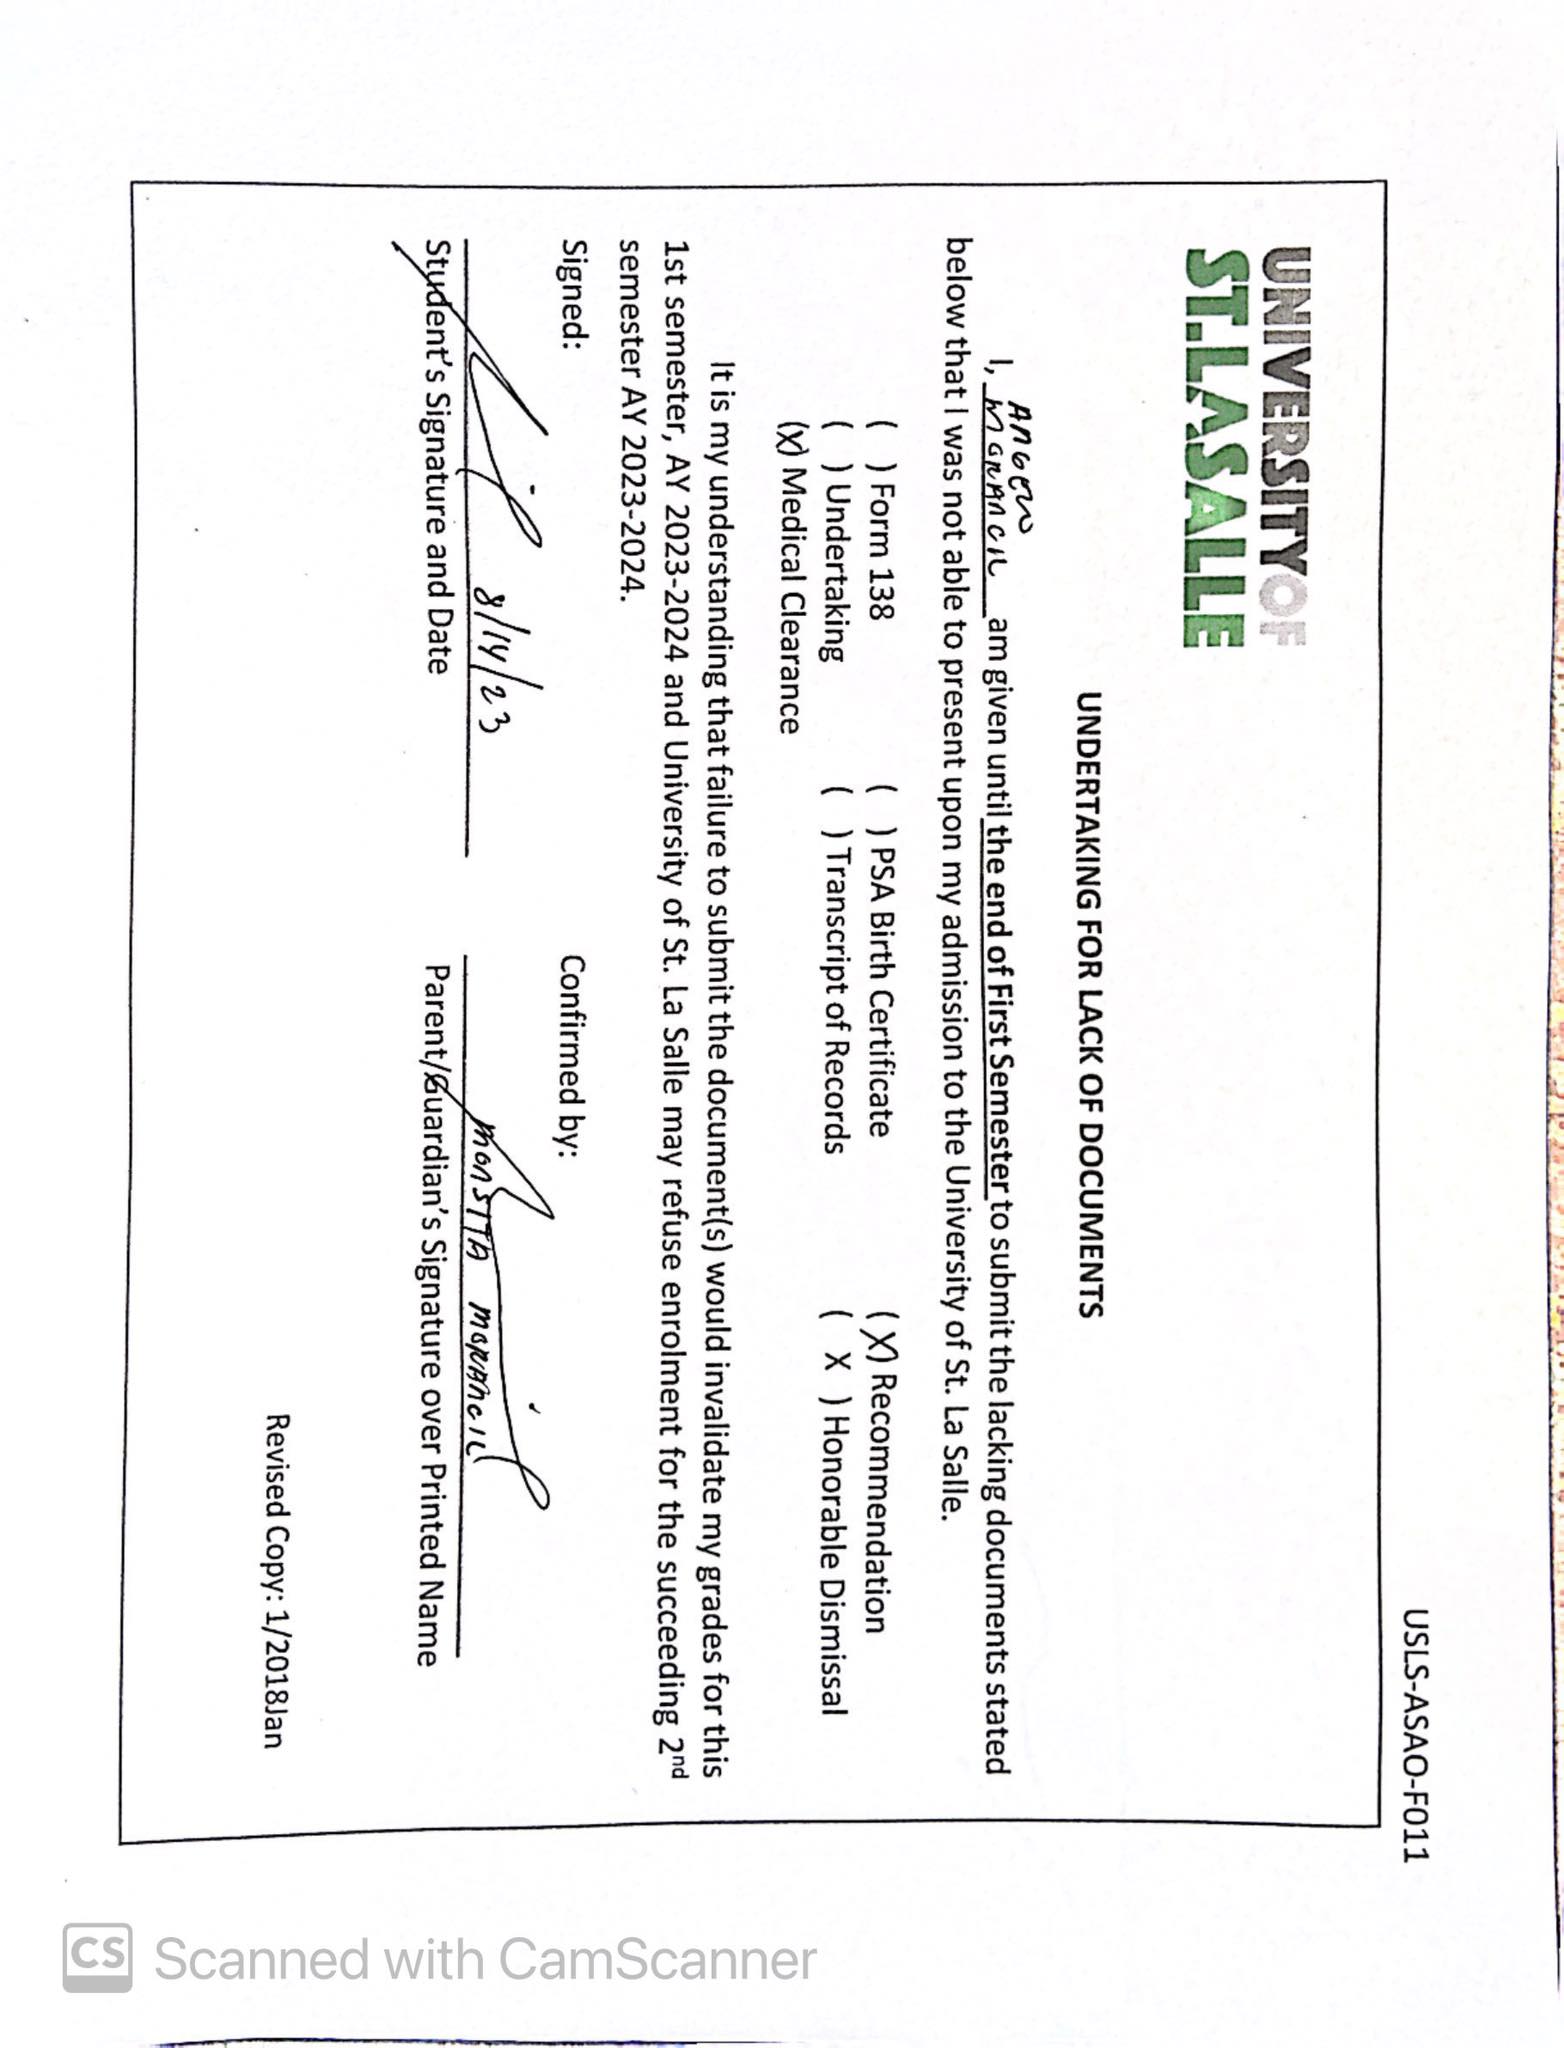 USLS-ASAO-F011
UNIVERSITYOF
ST.LASALLE
UNDERTAKING FOR LACK OF DOCUMENTS
Angew
I, Morancil am given until the end of First Semester to submit the lacking documents stated
below that I was not able to present upon my admission to the University of St. La Salle.
( ) Form 138 ( ) PSA Birth Certificate (X) Recommendation
( ) Undertaking ( ) Transcript of Records ( X ) Honorable Dismissal
(X) Medical Clearance
It is my understanding that failure to submit the document(s) would invalidate my grades for this
1st semester, AY 2023-2024 and University of St. La Salle may refuse enrolment for the succeeding 2nd
semester AY 2023-2024.
Signed: Confirmed by:
8/14/23
Student's Signature and Date Parent/Guardian's Signature over Printed Name
Revised Copy: 1/2018Jan
CS Scanned with CamScanner